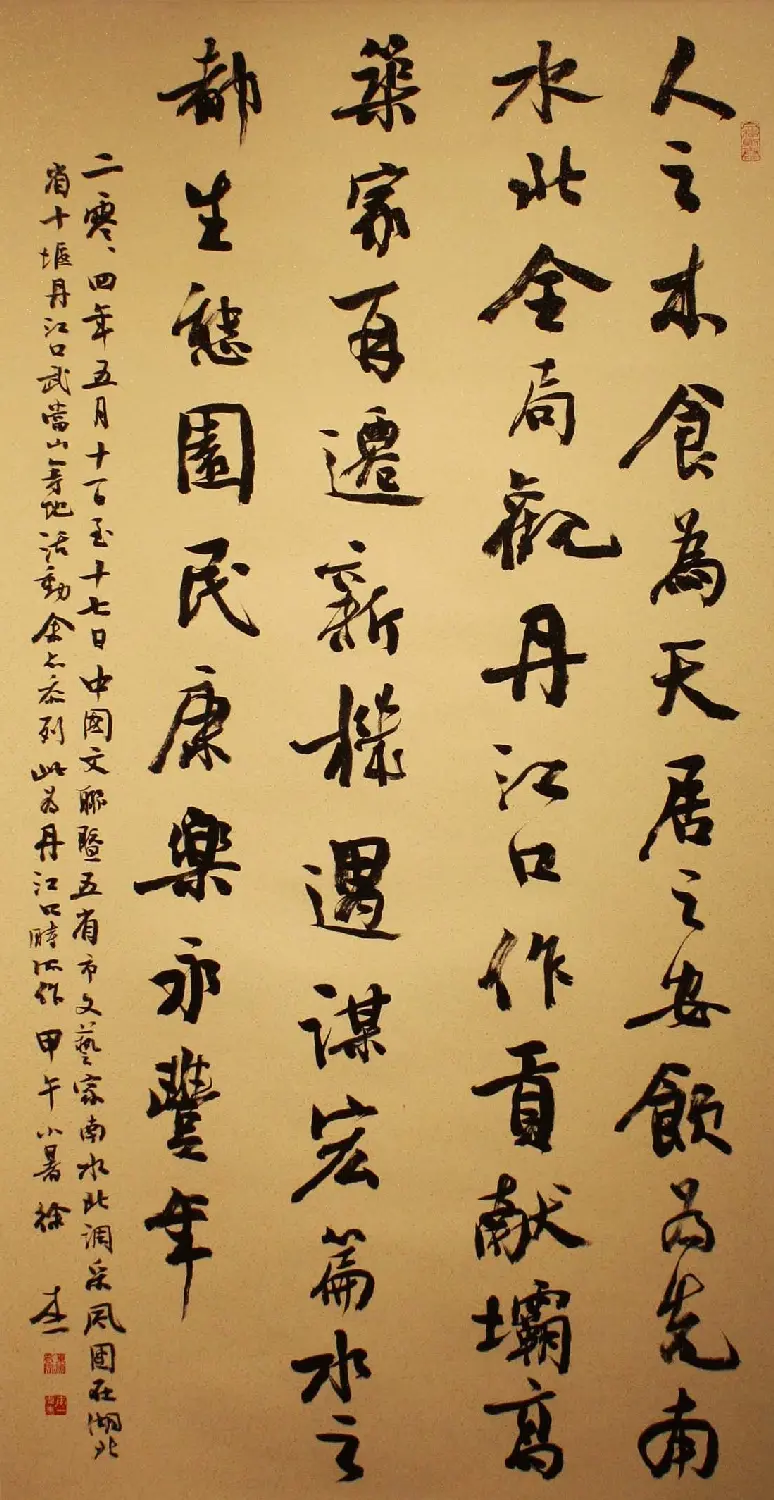 人之本食為天居之安飲為先南
水北全局觀丹江口作貢献壩高
築家再遷新機遇謀宏篇水之
都生態園民康樂永豐年
二零一四年五月十一日至十七日中國文聯暨五省市文藝家南水北調采風團在湖北
省十堰丹江口武當山等地活動余亦忝列此為丹江口時所作甲午小暑徐